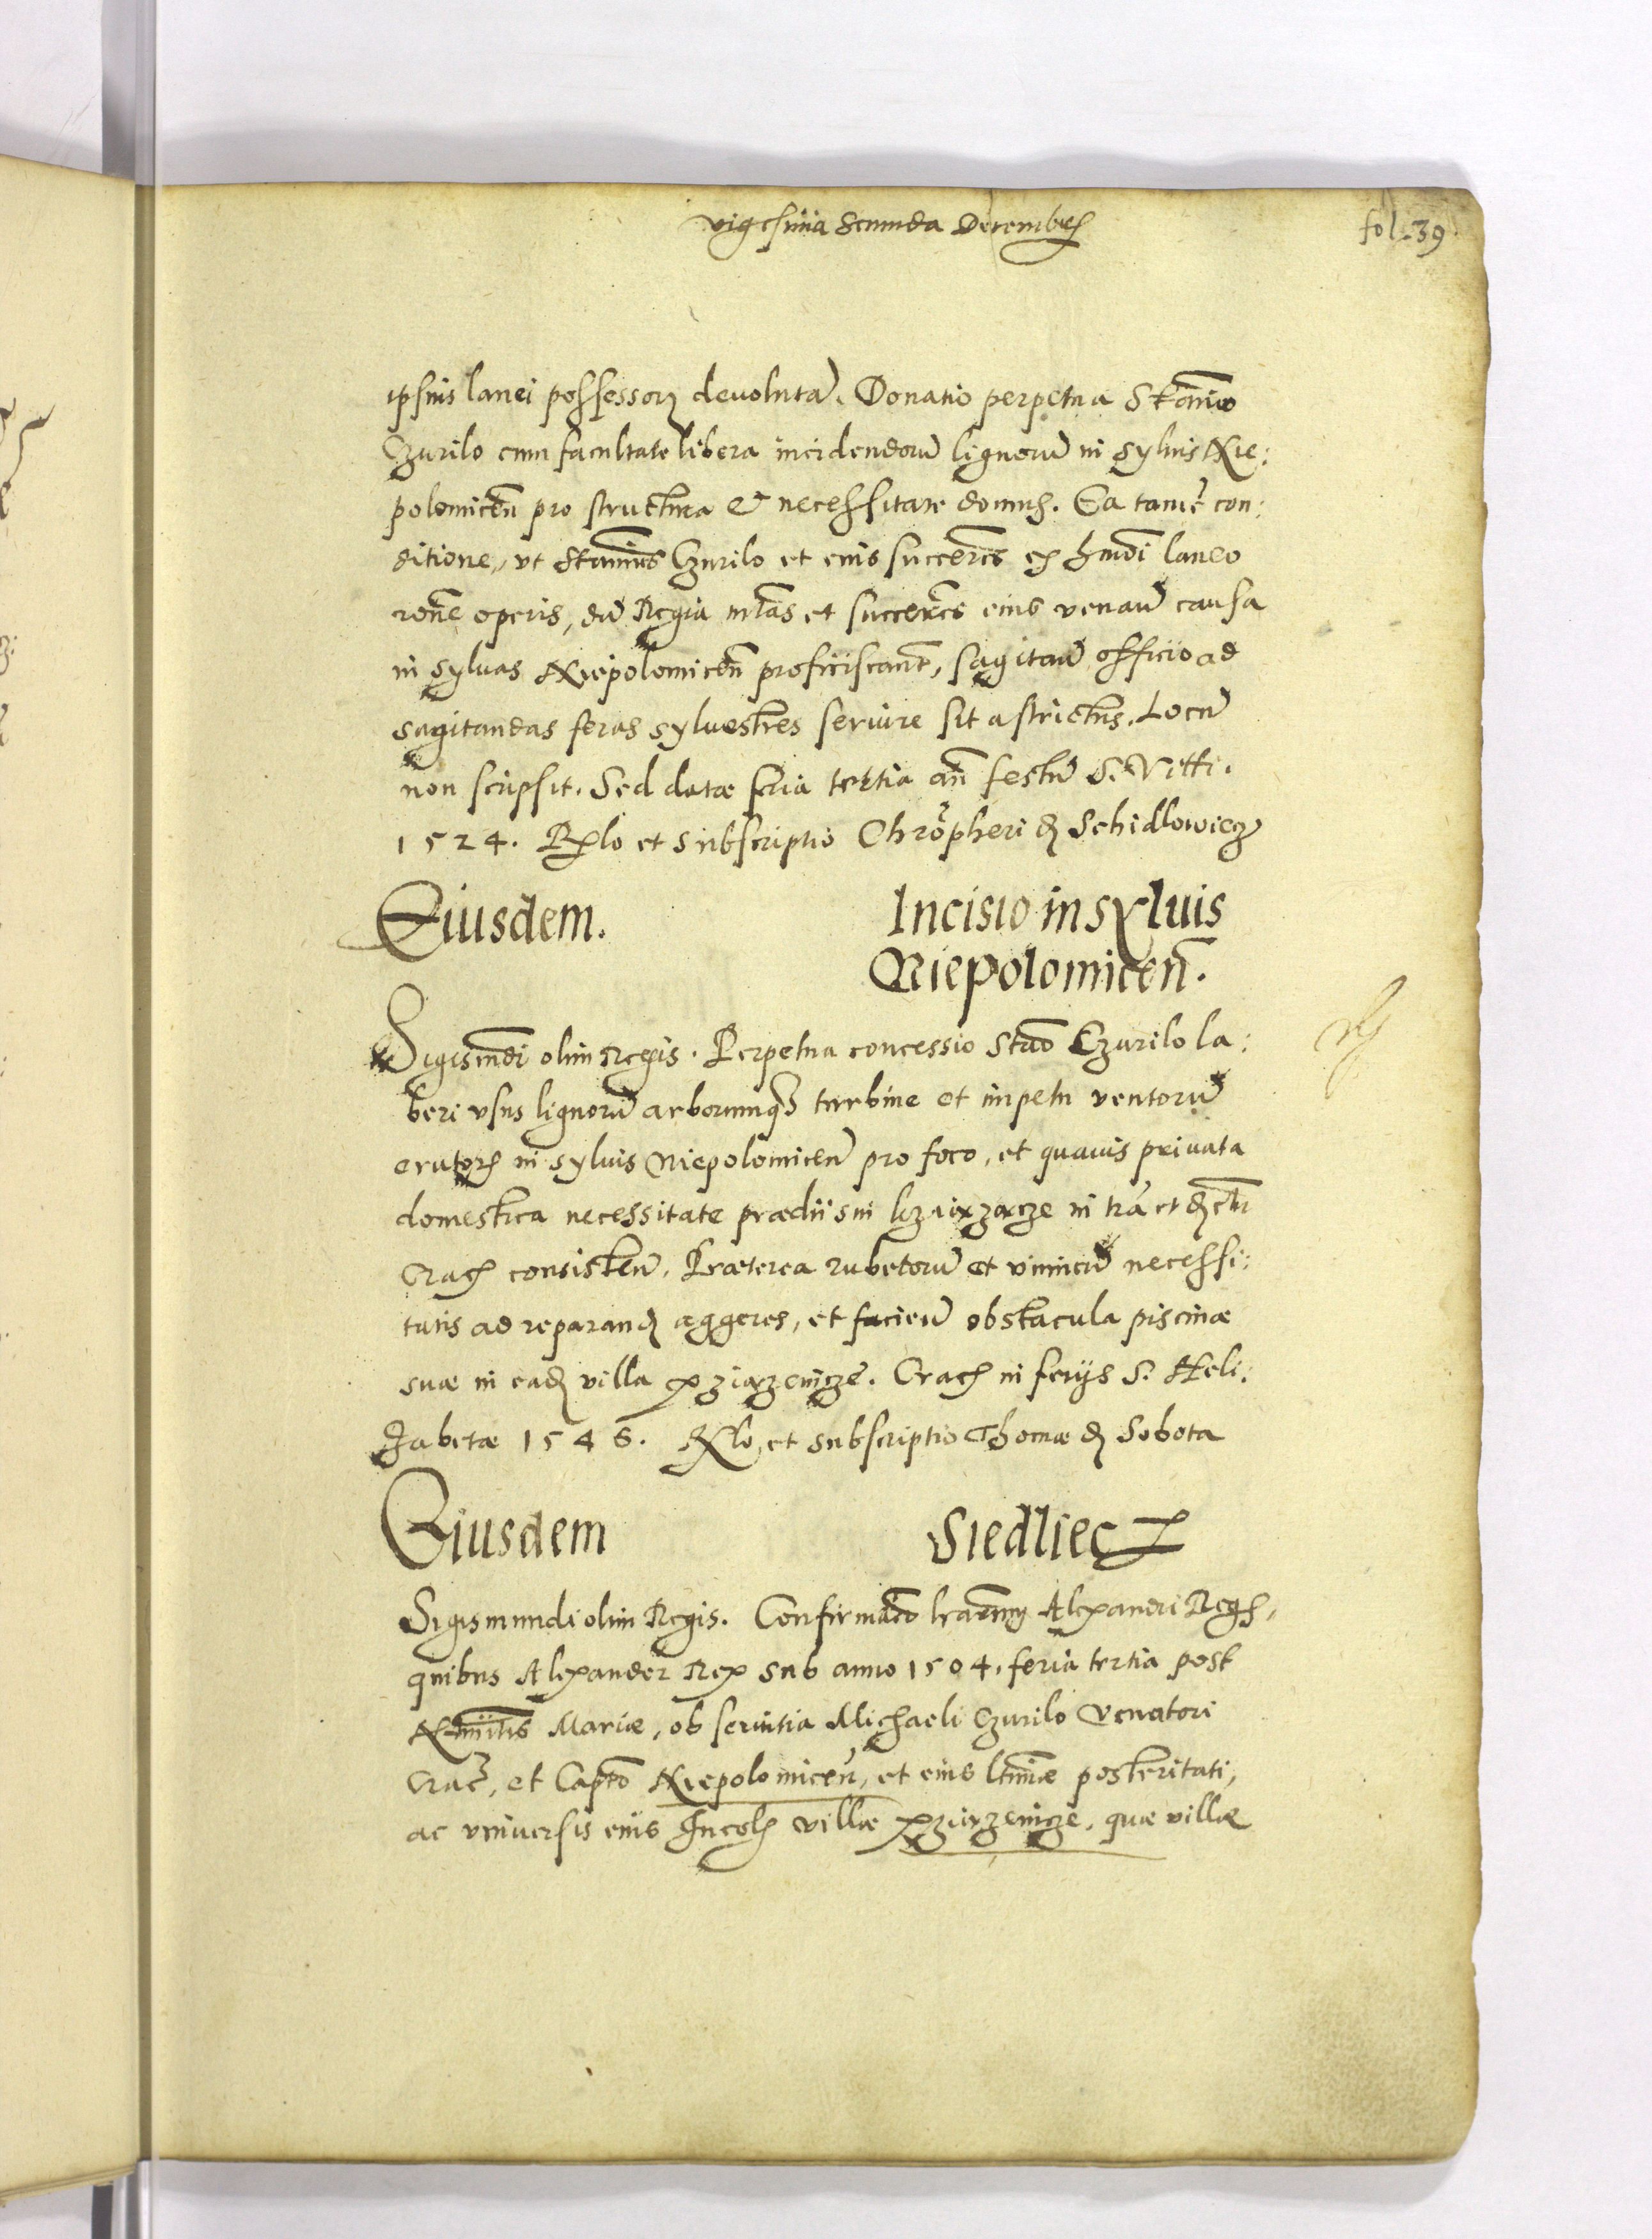 vigesima Secunda Decembris
fol. 39
ipsius lanei possessorũ devolutã. Donatio perpetua Stanisõ
Czurilo cum facultate libera incidendorũ lignorũ in syluis Nie:
polomiceñ pro structura et necessitate domus. Ea tamẽ con:
ditione, vt Stanisũs Czurilo et eius succeres ex hmõi laneo
rõne operis, dũ Regia mtas et succeres eius venanď causa
in syluas Niepolomiceñ proficiscant, sagitanď officio ad
sagitandas feras syluestres seruire sit astrictus. Locũ
non scripsit. Sed datæ feria tertia añ festũ S. Viti.
1524. Rlo et subscriptio Chrõpheri de Schidlowiecz
Eiusdem. Incisio in syluis
Niepolomiceñ.
Sigismdi olim Regis. Perpetua concessio Stão Czurilo la:
beri vsus lignorũ arborumqȝ turbine et impetu ventorũ
erutorũ in syluis Niepolomiceñ pro foco, et quauis priuata
domestica necessitate prædii sui in trã et
Crac consisteñ. Præterea rubetorũ et viminũ necessi:
tatis ad reparand aggeres, et facienď obstacula piscinæ
suæ in ead villa . Crac in ferijs S. Heli:
zabetæ 1546. Rlo, et subscriptio Thomæ de Sobota
Eiusdem Siedliecz
Sigismundi olim Regis. Confirmatõ lrarum Alexandri Regis,
quibus Alexander Rex sub anno 1504. feria tertia post
Natiuitis Mariæ, ob seruitia Michaeli Czurilo Venatori
Crac, et Captõ Niepolomiceñ, et eius ltimæ posteritati,
ac vniuersis eius Incolis villæ , quæ villæ